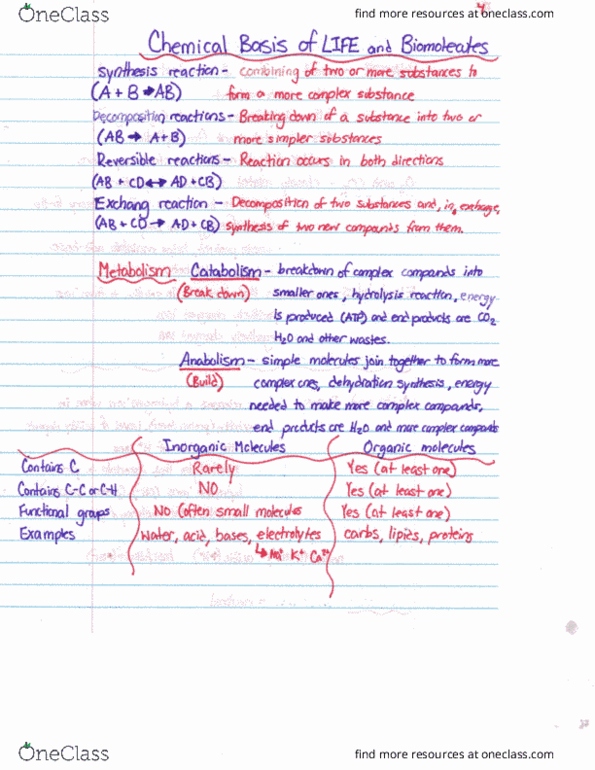 OneClass
find more resources at oneclass.com
4
Chemical Basis of LIFE and Biomolecules
Synthesis reaction - combining of two or more substances to
(A + B → AB) form a more complex substance
Decomposition reactions - Breaking down of a substance into two or
(AB → A+B) more simpler substances
Reversible reactions - Reaction occurs in both directions
(AB + CD ↔ AD + CB)
Exchang reaction - Decomposition of two substances and, in exchange,
(AB + CD → AD + CB) synthesis of two new compounds from them.
Metabolism Catabolism - breakdown of complex compounds into
(Break down) smaller ones, hydrolysis reaction, energy
is produced (ATP) and end products are CO2
H2O and other wastes.
Anabolism - simple molecules join together to form more
(Build) complex ones, dehydration synthesis, energy
needed to make more complex compounds,
end products are H2O and more complex compounds
Inorganic Molecules Organic molecules
Contains C Rarely Yes (at least one)
Contains C-C or C-H NO Yes (at least one)
Functional groups NO (often small molecules Yes (at least one)
Examples water, acid, bases, electrolytes carbs, lipids, proteins
↳ Na+ K+ Ca2+
OneClass
find more resources at oneclass.com